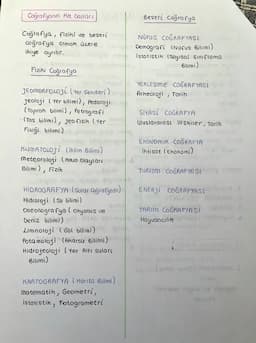 Coğrafyanın Alt Dalları
Coğrafya, Fiziki ve beşeri
coğrafya olmak üzere
ikiye ayrılır.
Fiziki Coğrafya
JEOMORFOLOJİ (Yer Şekilleri)
Jeoloji (Yer bilimi), Pedoloji
(Toprak bilimi), Petrografi
(Taş bilimi), Jeofizik (Yer
Fiziği bilimi)
KLİMATOLOJİ (İklim Bilimi)
Meteoroloji (Hava Olayları
Bilimi), Fizik
HİDROGRAFYA (Sular Coğrafyası)
Hidroloji (Su bilimi)
Oseonografya (Okyanus ve
Deniz bilimi)
Limnoloji (Göl bilimi)
Potamoloji (Akarsu Bilimi)
Hidrojeoloji (Yer Altı Suları
Bilimi)
KARTOGRAFYA (Harita Bilimi)
Matematik, Geometri,
İstatistik, Fotogrametri
Beşeri Coğrafya
NÜFUS COĞRAFYASI
Demografi (Nüfus Bilimi)
İstatistik (Sayısal Sınıflama
Bilimi)
YERLEŞME COĞRAFYASI
Arkeoloji, Tarih
SİYASİ COĞRAFYA
Uluslararası İlişkiler, Tarih
EKONOMİK COĞRAFYA
İktisat (Ekonomi)
TURİZM COĞRAFYASI
ENERJİ COĞRAFYASI
TARIM COĞRAFYASI
Hayvancılık